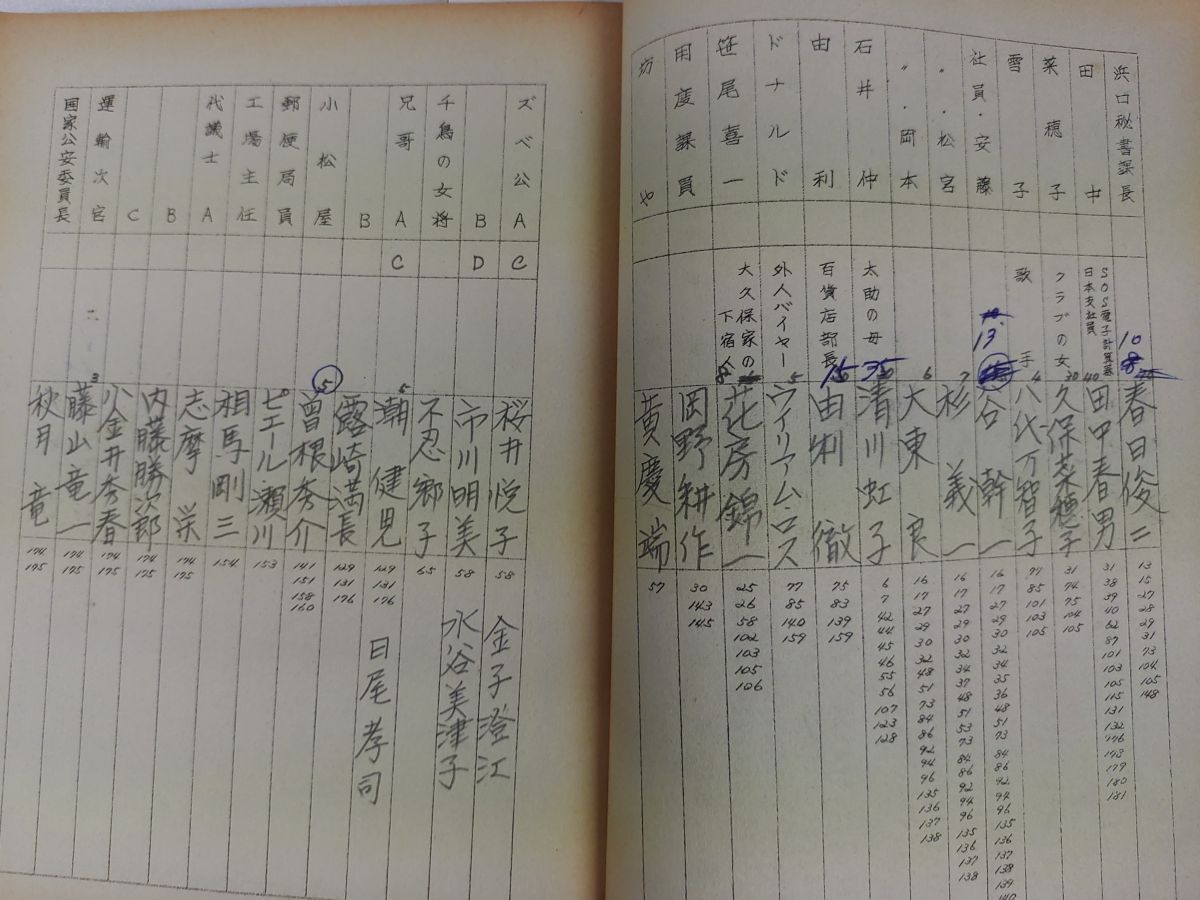 浜口秘書課長
10
春日俊二
13
15
27
28
29
31
73
104
105
148
田中
SOS電子計算器
日本支社員
40
田中春男
31
38
39
40
62
87
101
103
105
115
131
132
146
173
179
180
181
菜穂子
クラブの女
20
久保菜穂子
31
74
75
104
105
雪子
歌手
4
八代万智子
77
85
101
103
105
社員・安藤
13
谷幹一
16
17
27
29
30
32
34
35
36
48
51
73
84
86
92
94
96
135
136
137
138
139
140
〃・松宮
7
杉義一
16
17
27
29
30
32
34
37
48
51
53
73
84
86
92
94
96
135
136
137
138
〃・岡本
6
大東良
16
17
27
29
30
32
48
51
73
84
86
92
94
96
135
136
137
138
石井仲
太助の母
35
清川虹子
6
7
42
44
45
46
55
56
107
123
128
由利
百貨店部長
15
由利徹
75
83
139
159
ドナルド
外人バイヤー
5
ウイリアム・ロス
77
85
140
159
笹尾喜一
大久保家の
下宿人
8
花房錦一
25
26
58
102
103
105
106
用度課員
岡野耕作
30
143
145
坊や
黄慶端
57
ズベ公A
C
桜井悦子
58
金子澄江
B
D
市川明美
58
水谷美津子
千鳥の女将
不忍郷子
65
兄哥A
C
5
潮健児
129
131
176
日尾孝司
B
露崎満長
129
131
176
小松屋
5
曽根秀介
141
151
158
160
郵便局員
ピエール瀬川
153
工場主任
相馬剛三
154
代議士A
志摩栄
174
175
B
内藤勝次郎
174
175
C
小金井秀春
174
175
運輸次官
3
藤山竜一
174
175
国家公安委員長
秋月竜
174
175